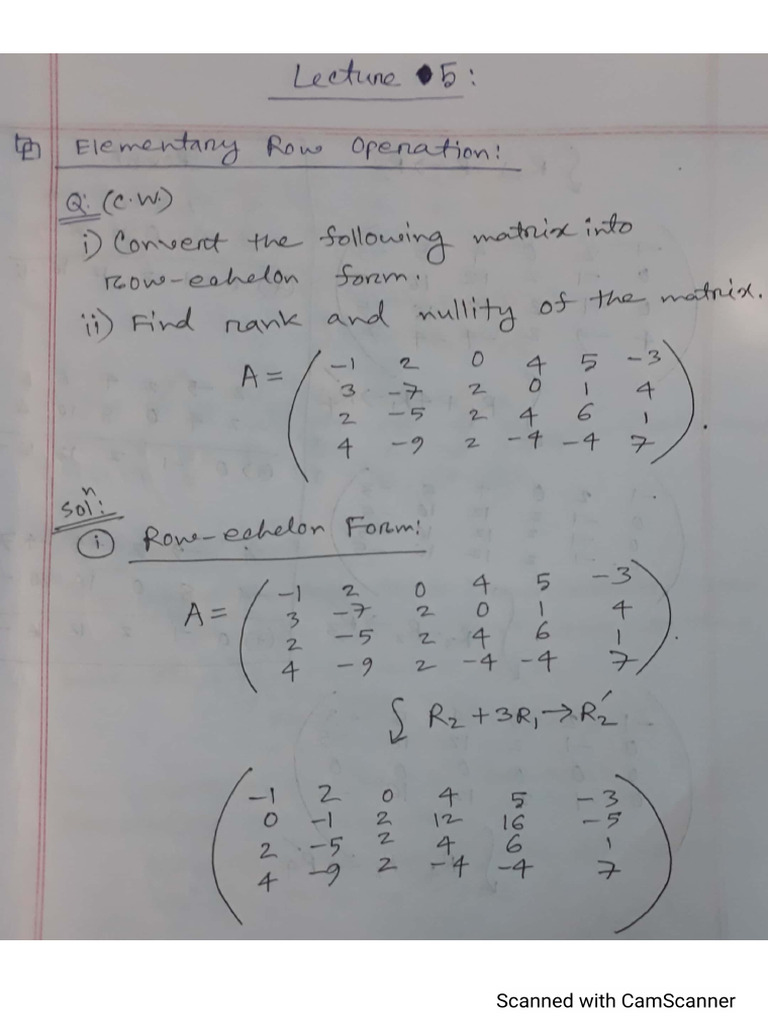 Lecture 5:
Elementary Row Operation:
Q: (C.W.)
i) Convert the following matrix into
row-echelon form.
ii) Find rank and nullity of the matrix.
A = ( -1 2 0 4 5 -3
3 -7 2 0 1 4
2 -5 2 4 6 1
4 -9 2 -4 -4 7 ).
Solⁿ:
i Row-echelon Form:
A = ( -1 2 0 4 5 -3
3 -7 2 0 1 4
2 -5 2 4 6 1
4 -9 2 -4 -4 7 ).
R₂ + 3R₁ → R₂′
( -1 2 0 4 5 -3
0 -1 2 12 16 -5
2 -5 2 4 6 1
4 -9 2 -4 -4 7 )
Scanned with CamScanner